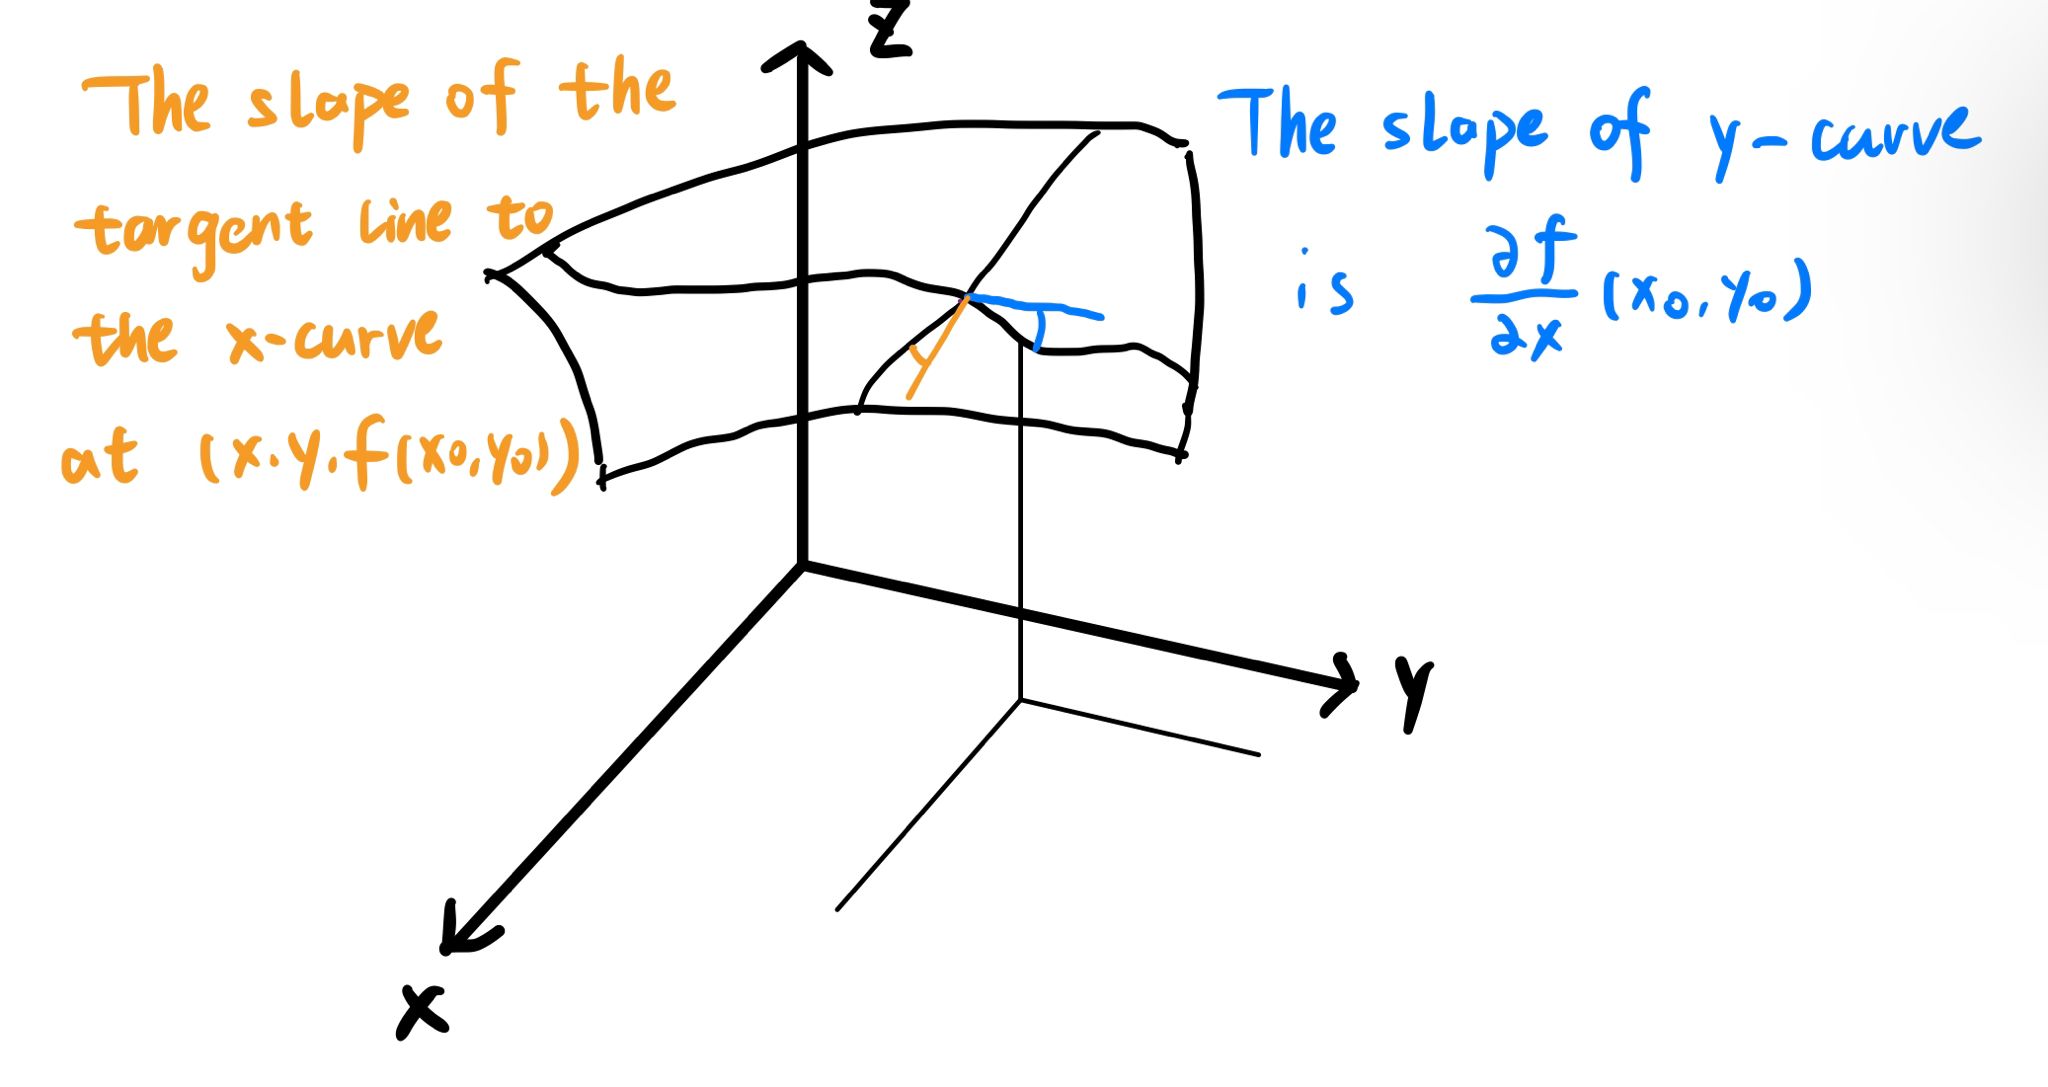 The slope of the
tangent line to
the x-curve
at (x.y.f(x₀,y₀))
z
The slope of y-curve
is ∂f/∂x (x₀,y₀)
y
x